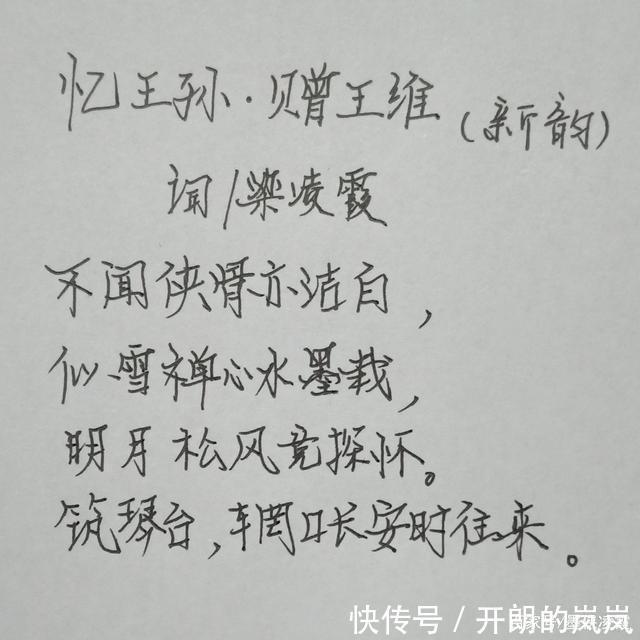 忆王孙·赠王维（新韵）
词/梁凌霞
不闻侠骨亦洁白，
似雪禅心水墨栽，
明月松风竞探怀。
筑琴台，辋口长安时往来。
快传号/开朗的岚岚